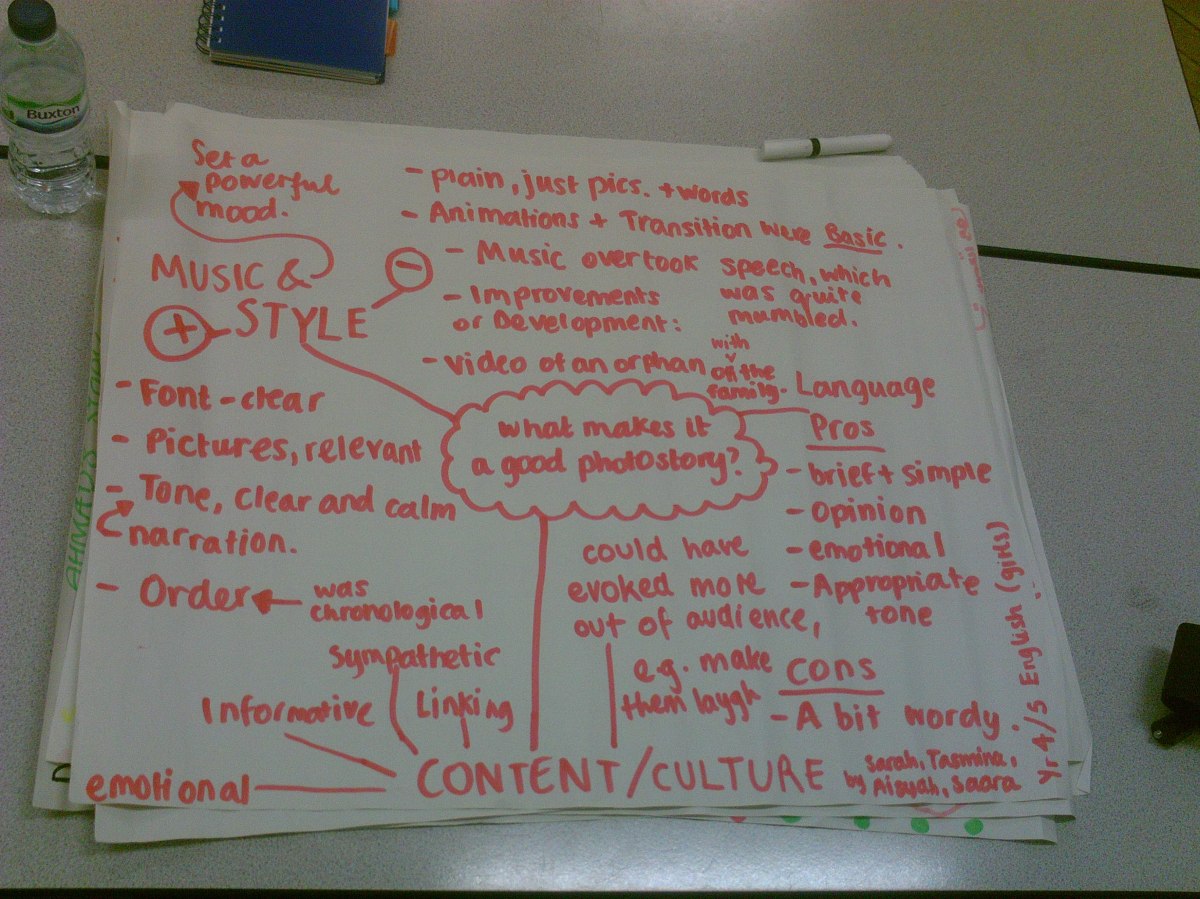 Buxton
Set a
powerful
mood.
MUSIC &
STYLE
+
-
- plain, just pics. + words
- Animations + Transition were Basic.
- Music overtook speech, which
was quite
mumbled.
- Improvements
or Development:
- video of an orphan with
the
family.
- Font - clear
- Pictures, relevant
- Tone, clear and calm
narration.
- Order
was
chronological
what makes it
a good photostory?
Language
Pros
- brief + simple
- opinion
- emotional
- Appropriate
tone
cons
- A bit wordy.
could have
evoked more
out of audience,
e.g. make
them laygh
sympathetic
Linking
Informative
emotional
CONTENT/CULTURE
by Sarah, Tasmina,
Aisyah, Saara
Yr 4/5 English (girls)